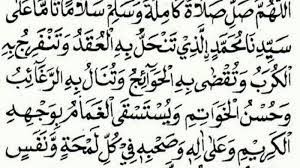 اَللّٰهُمَّ صَلِّ صَلَاةً كَامِلَةً وَسَلِّمْ سَلَامًا تَامًّا عَلَى
سَيِّدِنَا مُحَمَّدِ الَّذِيْ تَنْحَلُّ بِهِ الْعُقَدُ وَتَنْفَرِجُ بِهِ
الْكُرَبُ وَتُقْضٰى بِهِ الْحَوَائِجُ وَتُنَالُ بِهِ الرَّغَائِبُ
وَحُسْنُ الْخَوَاتِمِ وَيُسْتَسْقَى الْغَمَامُ بِوَجْهِهِ
الْكَرِيْمِ وَعَلٰى اٰلِهِ وَصَحْبِهِ فِيْ كُلِّ لَمْحَةٍ وَنَفَسٍ